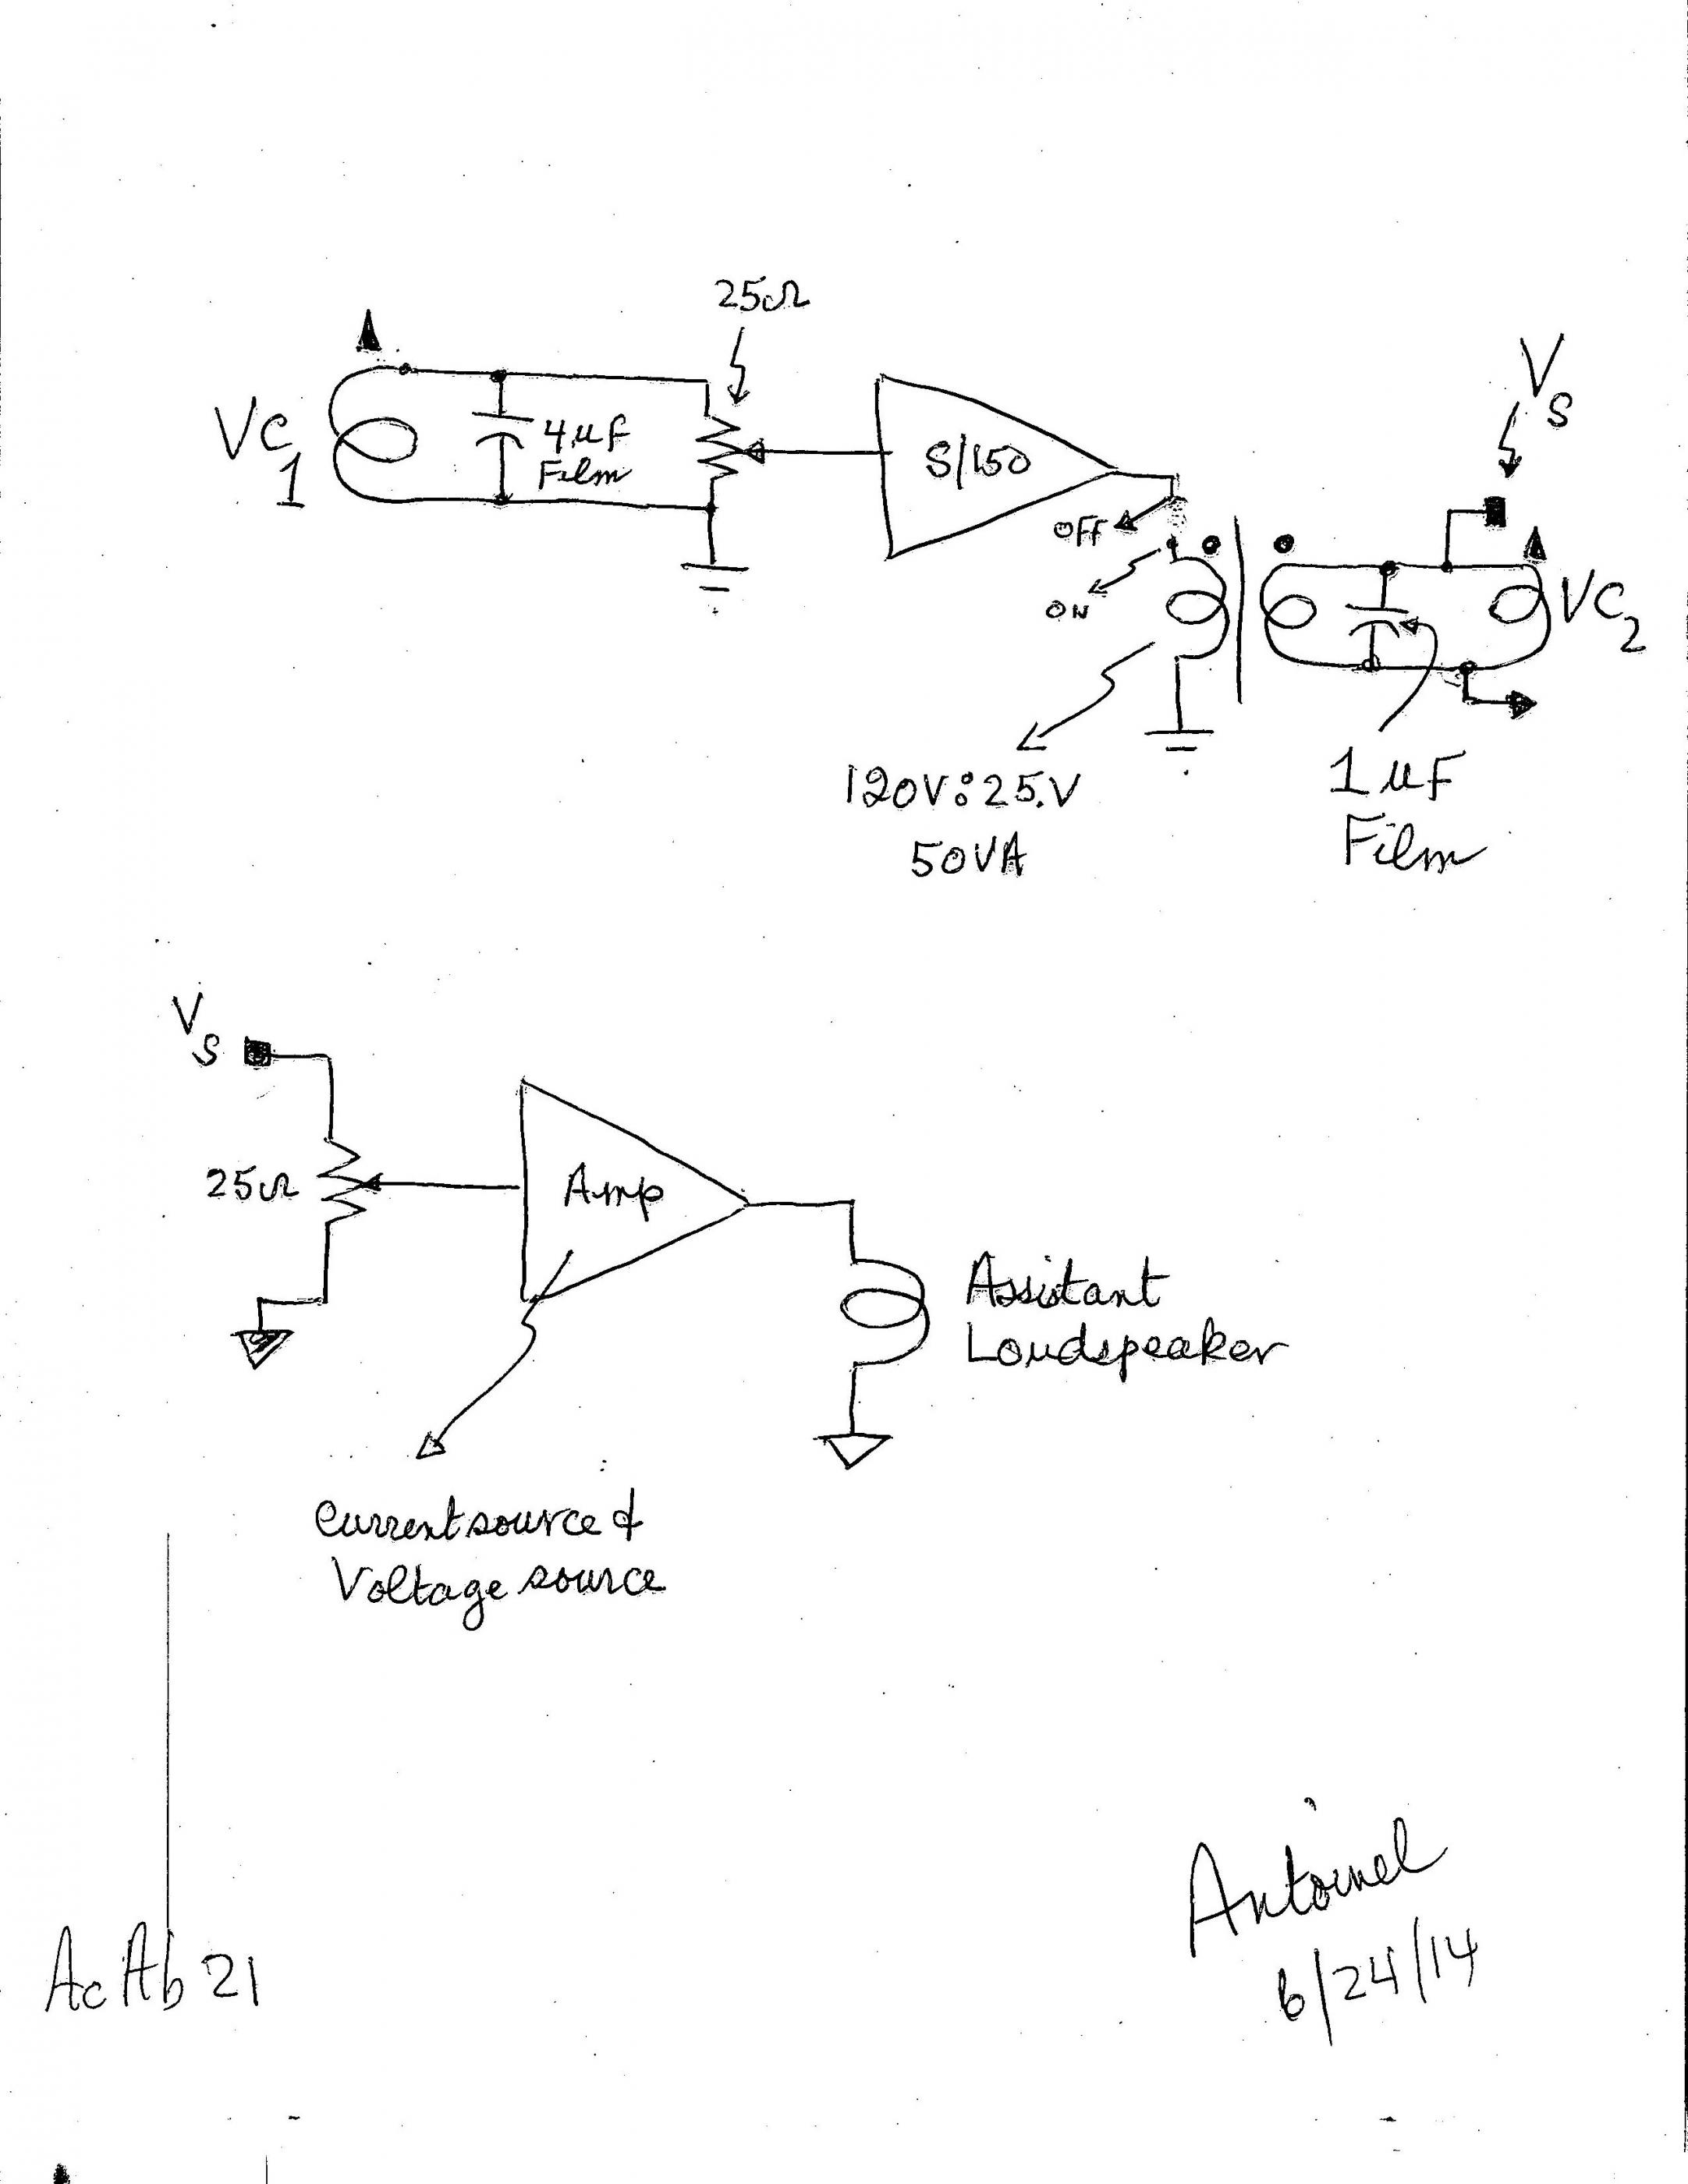 25Ω
VC1
4µF
Film
S/150
OFF
ON
VS
VC2
120V:25.V
50VA
1µF
Film
VS
25Ω
Amp
Assistant
Loudspeaker
Current source &
Voltage source
Antoinel
6/24/14
AcAb 21